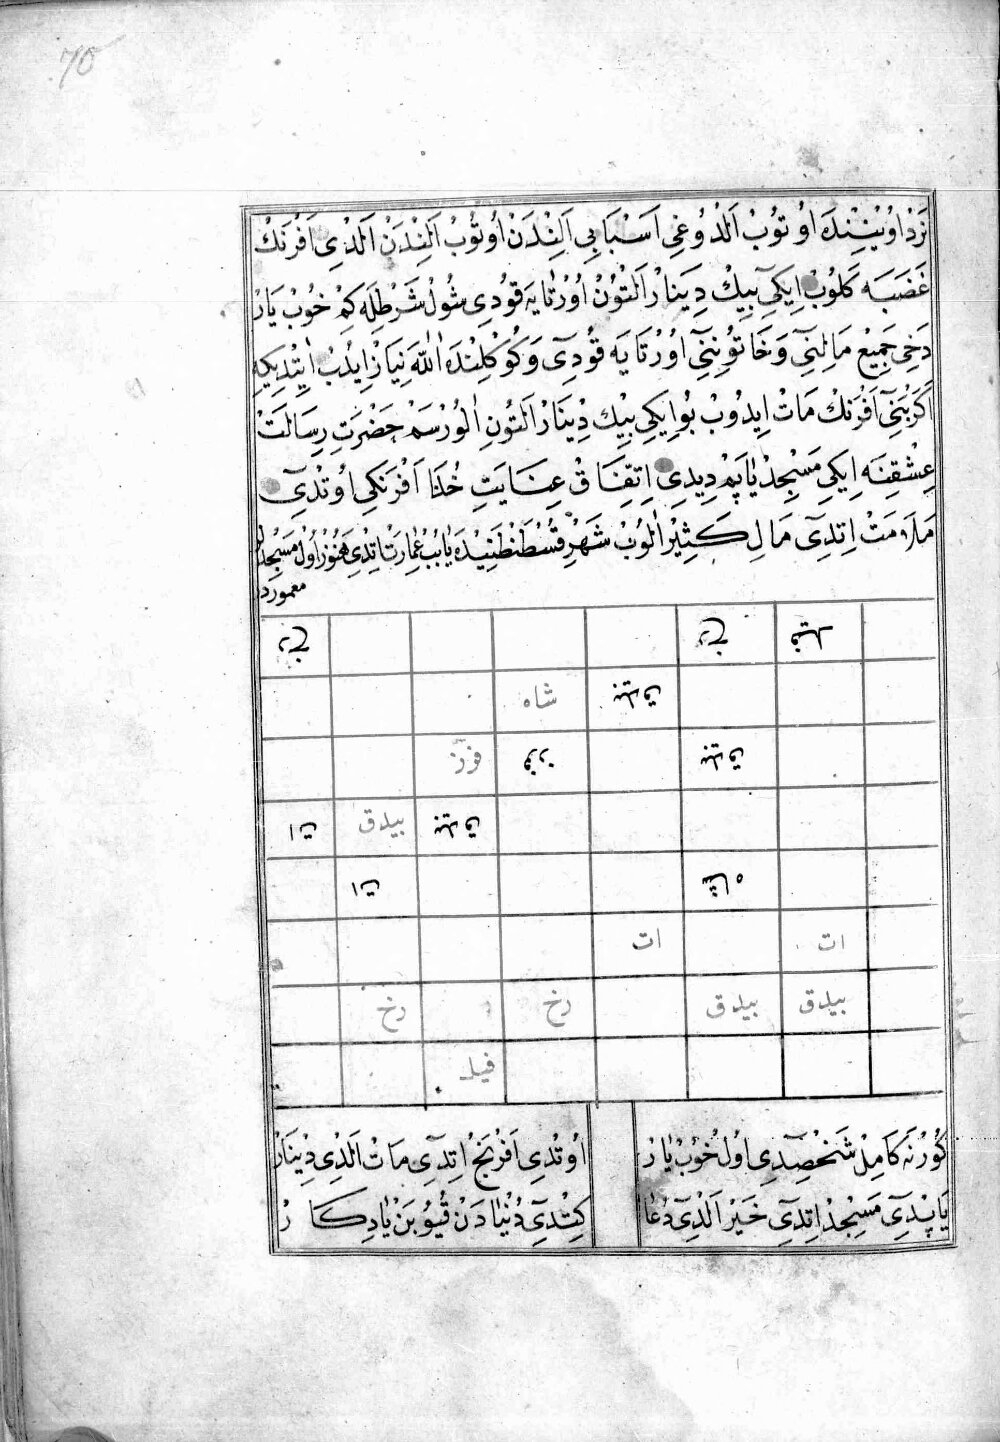 70
نَرْد اُویُنِنْدَه اُوتُوبْ اَلْدُوغِی اَسْبَابِی اَلِنْدَنْ اُوتُوبْ اَلِنْدَنْ اَلْدِی اَفْرَنْكْ
غَضَبَه كَلُوبْ اِیكِی بِیكْ دِینَارْ اَلتُونْ اُورْتَایَه قُودِی شُولْ شَرْطِلَه كِمْ خُوبْ یَارْ
دَخِی جَمِیعْ مَالِنِی وَخَاتُونِنِی اُورْتَایَه قُودِی وَكُوكْلِنْدَه اَللّٰهَ نِیَازْ اِیدُبْ اِیتْدِیكِه
اَكَرْ بُنِی اَفْرَنْكْ مَاتْ اِیدُوبْ بُو اِیكِی بِیكْ دِینَارْ اَلتُونِ اَلُورْسَمْ حَضْرَتِ رِسَالَتْ
عِشْقِنَه اِیكِی مَسْجِدْ یَاپَمْ دِیدِی اِتِّفَاقْ عِنَایَتِ خُدَا اَفْرَنْكِی اُوتْدِی
مَاتْ اِتدِی مَالِ كَثِیرْ اَلُوبْ شَهْرِ قُسْطَنْطَنِیَّدَه یَاپُبْ عِمَارَتْ اِتْدِی هَنُوزْ اُولْ مَسْجِدْلَرْ
معموردر
شاه
فرز
بیدق
ات ات
بیدق بیدق رخ رخ
فیل
كُورْ نَه كَامِلْ شَخْصِدِی اُولْ خُوبْ یَارْ اُوتْدِی اَفْرَنْجِ اِتدِی مَاتْ اَلْدِی دِینَارْ
یَاپْدِی مَسْجِدْ اِتدِی خَیْرْ اَلْدِی دُعَا كِتْدِی دُنْیَادَنْ قُیُوبَنْ یَادِكَارْ